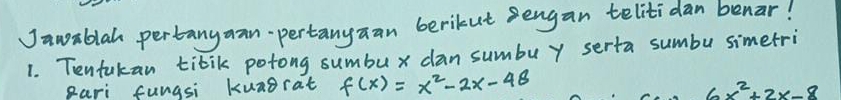 Jawablah pertanyaan-pertanyaan berikut dengan teliti dan benar!
1. Tentukan titik potong sumbu x dan sumbu y serta sumbu simetri
dari fungsi kuadrat f(x) = x²-2x-48
6x²+2x-8